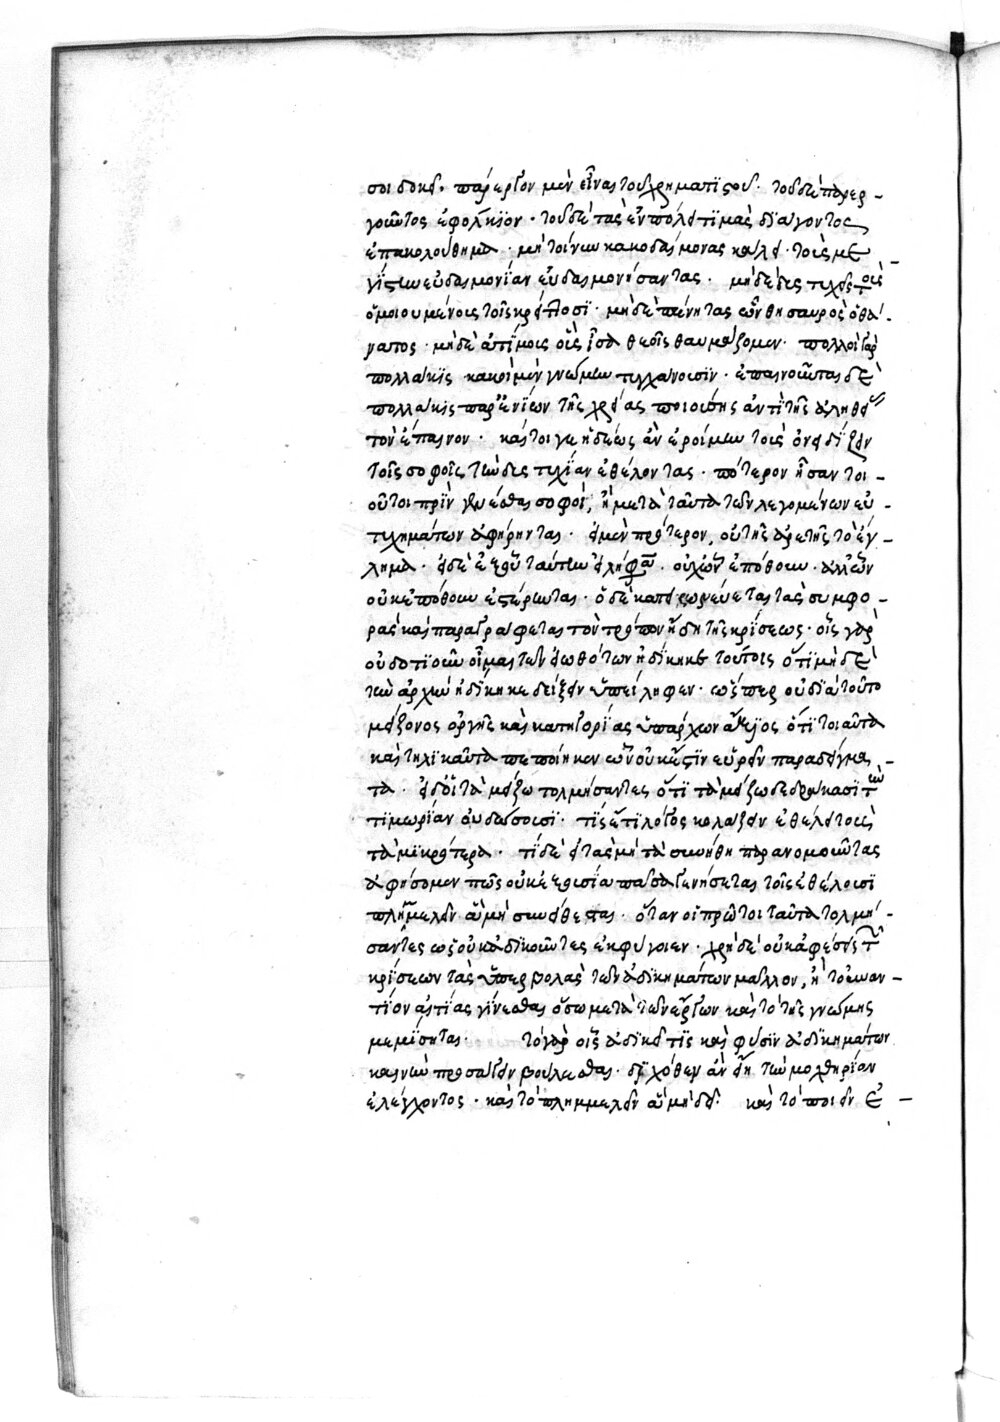 σοι δοκεῖ· πάρεργον μὲν εἶναι τοῦ χρηματίζου. τοῦ δὲ παρερ -
γοῦντος ἐφόλκϊον· τοῦ δὲ τὰς ἐν πόλει τϊμὰς δϊάγοντος
ἐπακολούθημα· μὴ τοίνυν κακοδαίμονας καλεῖ· τοὺς με -
γίστην εὐδαιμονίαν εὐδαιμονήσαντας. μηδὲ δυστυχεῖς τοῖς
ὁμοιουμένοις τοῖς κρείττοσϊ· μηδὲ πένητας ὧν θησαυρὸς ὁ θά -
νατος· μηδὲ ἀτίμοις οἷς ἴσα θεοῖς θαυμάζομεν· πολλοὶ γὰρ
πολλάκϊς κακοὶ μὲν γνώμην τυγχάνουσϊν· ἐπαινοῦνται δὲ
πολλάκις παρ' ἐνίων τῆς χρείας ποιούσης ἀντὶ τῆς ἀληθείας
τὸν ἔπαινον· καίτοι γε ἡδέως ἂν ἐροίμην τοὺς ὀνειδίζειν
τοῖς σοφοῖς τὴν δυστυχίαν ἐθέλοντας· πότερον ἦσαν τοι -
οῦτοι πρὶν γενέσθαι σοφοί, ἢ μετὰ ταῦτα τῶν λεγομένων εὐ -
τυχημάτων ἀφήρηνται· εἰ μὲν πρότερον, οὐ τῆς ἀρετῆς τὸ ἔγ -
λημα· εἰ δὲ ἐξ οὗ ταύτην εἰλήφασιν· οὐχ ὧν ἐπόθουν· ἀλλ' ὧν
οὐκ ἐπόθουν ἐστέρηνται· ὁ δὲ κατειρωνεύεται τὰς συμφο -
ρὰς καὶ παραγράφεται τὸν τρόπον ἤδη τῆς κρίσεως· οἷς γὰρ
οὐδοτϊοῦν οἶμαι τῶν εἰωθότων ἠδίκηκε τούτοις ὅτϊ μὴ δὲ
τὴν ἀρχὴν ἠδίκηκε δεῖξαι ὑπείληφεν· ὥσπερ οὐ διὰ τοῦτο
μείζονος ὀργῆς καὶ κατηγορίας ὑπάρχων ἄξιος ὅτϊ τοιαῦτα
καὶ τηλϊκαῦτα πεποίηκεν ὧν οὐκ ἔστϊν εὑρεῖν παραδείγμα -
τα· εἰ δ' οἱ τὰ μείζω τολμήσαντες ὅτϊ τὰ μείζω δεδράκασϊ τὴν
τιμωρίαν οὐ δώσουσϊ· τίς ἔτϊ λόγος κολάζειν ἐθέλειν τοὺς
τὰ μϊκρότερα· τί δὲ εἰ τὰς μὴ τὰ συνήθη παρανομοῦντας
ἀφήσομεν πῶς οὐκ ἐξουσία πᾶσα γενήσεται τοῖς ἐθέλουσϊ
πλημμελεῖν ἃ μὴ συνείθισται· ὅταν οἱ πρῶτοι ταῦτα τολμή -
σαντες ὡς οὐκ ἀδϊκοῦντες ἐκφύγοιεν· χρὴ δὲ οὐκ ἀφέσεις τῶν
κρίσεων τὰς ὑπερβολὰς τῶν ἀδικημάτων μᾶλλον, ἢ τοὐναν -
τίον αἰτίας γίνεσθαι ὅσῳ μετὰ τῶν ἔργων καὶ τὸ τῆς γνώμης
μεμίσηται. τὸ γὰρ οἷς ἀδικεῖ τϊς καὶ φύσϊν ἀδϊκημάτων
καινὴν προσάγειν βούλεσθαι· διχόθεν ἂν εἴη τὴν μοχθηρίαν
ἐλέγχοντος· καὶ τὸ πλημμελεῖν ἃ μὴ δεῖ. καὶ τὸ ποιεῖν ἐ -